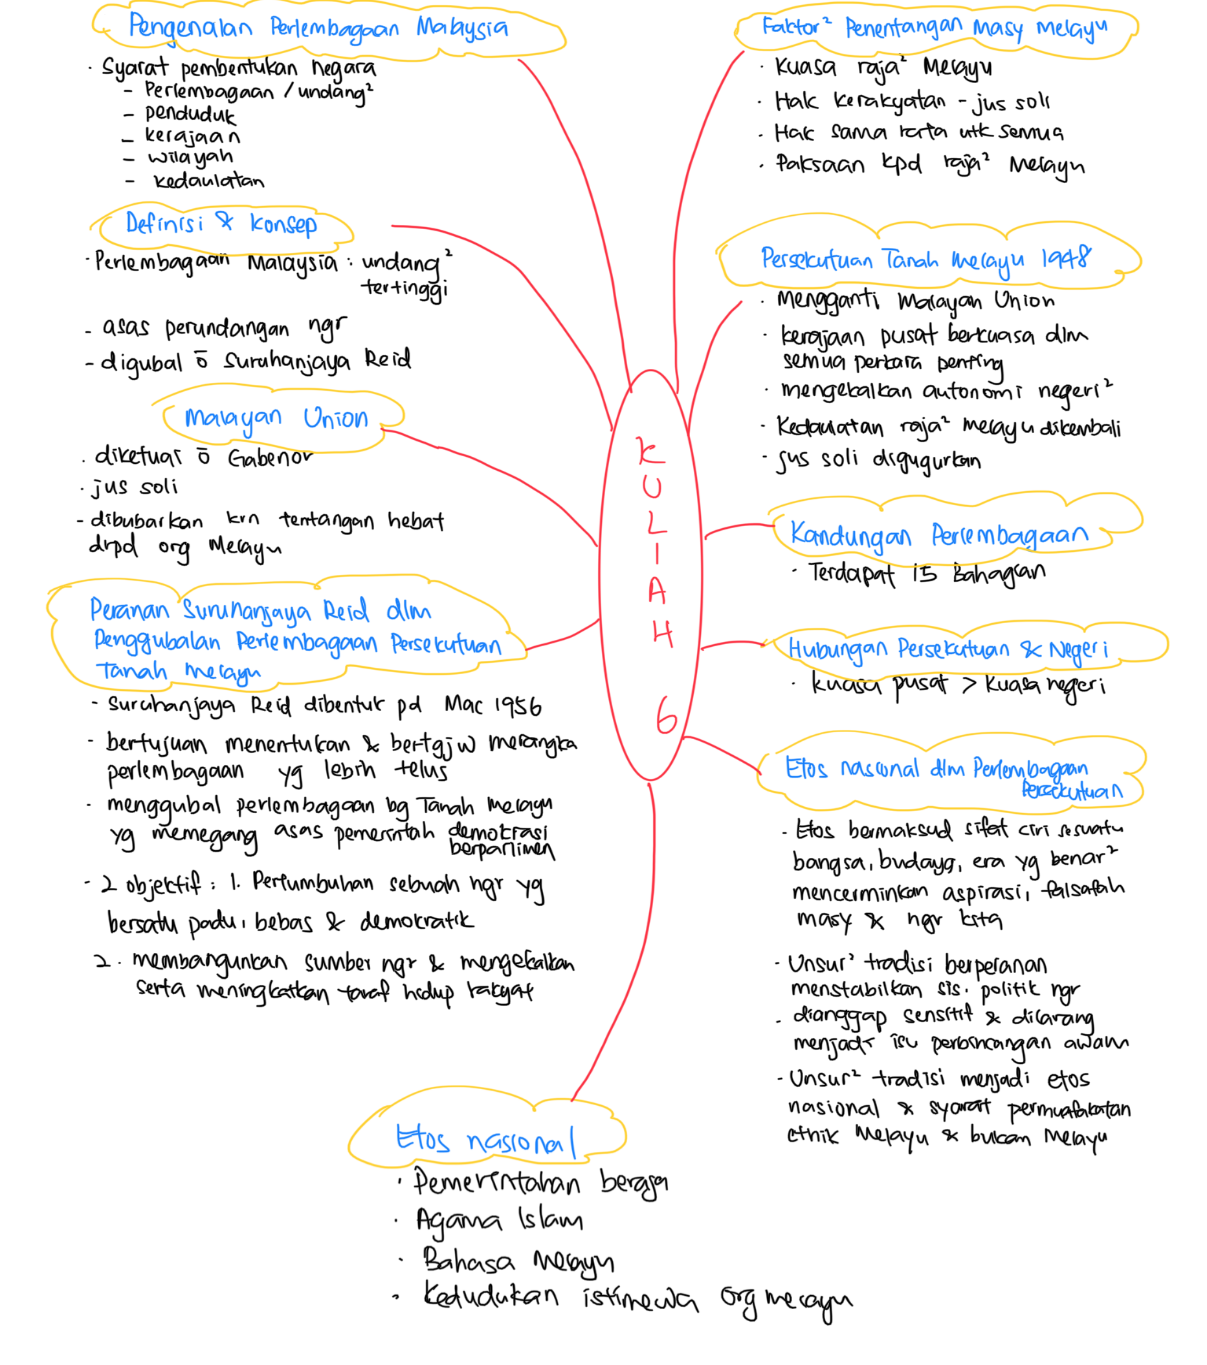 Pengenalan Perlembagaan Malaysia
· Syarat pembentukan negara
- Perlembagaan / undang²
- penduduk
- kerajaan
- wilayah
- kedaulatan
Definisi & Konsep
· Perlembagaan Malaysia : undang²
tertinggi
- asas perundangan ngr
- digubal ō Suruhanjaya Reid
Malayan Union
· diketuai ō Gabenor
· jus soli
- dibubarkan krn tentangan hebat
drpd org Melayu
Peranan Suruhanjaya Reid dlm
Penggubalan Perlembagaan Persekutuan
Tanah Melayu
- Suruhanjaya Reid dibentuk pd Mac 1956
- bertujuan menentukan & bertgjw merangka
perlembagaan yg lebih telus
- menggubal perlembagaan bg Tanah Melayu
yg memegang asas pemerintah demokrasi
berparlimen
- 2 objektif : 1. Pertumbuhan sebuah ngr yg
bersatu padu, bebas & demokratik
2. membangunkan sumber ngr & mengekalkan
serta meningkatkan taraf hidup rakyat
KULIAH 6
Faktor² Penentangan Masy Melayu
· Kuasa raja² Melayu
· Hak kerakyatan - jus soli
· Hak sama rata utk semua
· Paksaan kpd raja² Melayu
Persekutuan Tanah Melayu 1948
· Mengganti Malayan Union
· kerajaan pusat berkuasa dlm
semua perkara penting
· mengekalkan autonomi negeri²
· Kedaulatan raja² Melayu dikembali
· jus soli digugurkan
Kandungan Perlembagaan
· Terdapat 15 Bahagian
Hubungan Persekutuan & Negeri
· kuasa pusat > kuasa negeri
Etos nasional dlm Perlembagaan
Persekutuan
· Etos bermaksud sifat ciri sesuatu
bangsa, budaya, era yg benar²
mencerminkan aspirasi, falsafah
masy & ngr kita
· Unsur² tradisi berperanan
menstabilkan sis. politik ngr
· dianggap sensitif & dilarang
menjadi isu perbincangan awam
· Unsur² tradisi menjadi etos
nasional & syarat permuafakatan
ethik Melayu & bukan Melayu
Etos nasional
· Pemerintahan beraja
· Agama Islam
· Bahasa Melayu
· Kedudukan istimewa org melayu